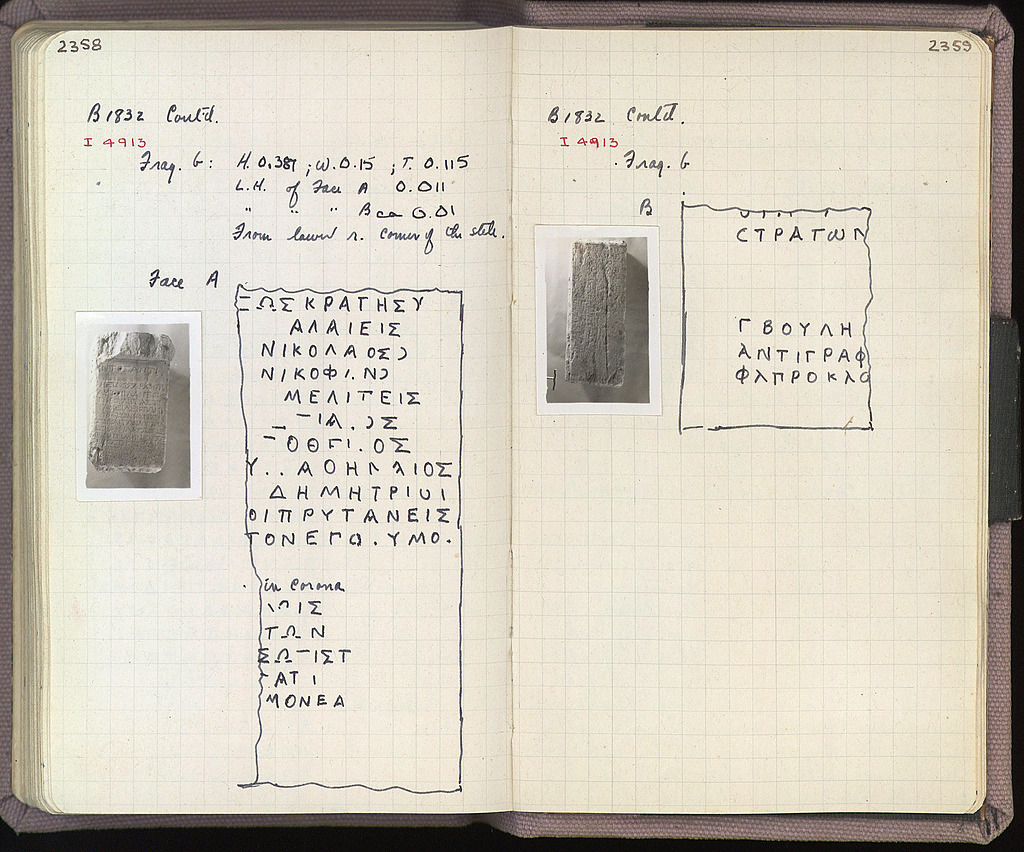 2358
B 1832 Cont'd.
I 4913
Frag. G: H. 0.387 ; W. 0.15 ; T. 0.115
L.H. of Face A 0.011
" " " B ca 0.01
From lower r. corner of the stele.
Face A
ΣΩΣΚΡΑΤΗΣΥ
ΑΛΑΙΕΙΣ
ΝΙΚΟΛΑΟΣ Ͻ
ΝΙΚΟΦ.Ν Ͻ
ΜΕΛΙΤΕΙΣ
Υ..ΑΘΗΝΑΙΟΣ
ΔΗΜΗΤΡΙΟΙ
ΟΙΠΡΥΤΑΝΕΙΣ
ΤΟΝΕΠΩ.ΥΜΟ.
in corona
ΤΩΝ
ΣΩΤΙΣΤ
ΑΤΙ
ΜΟΝΕΑ
2359
B 1832 Cont'd.
I 4913
Frag. G
B
CΤΡΑΤωΝ
Γ ΒΟΥΛΗ
ΑΝΤΙΓΡΑΦ
ΦΛΠΡΟΚΛΟ